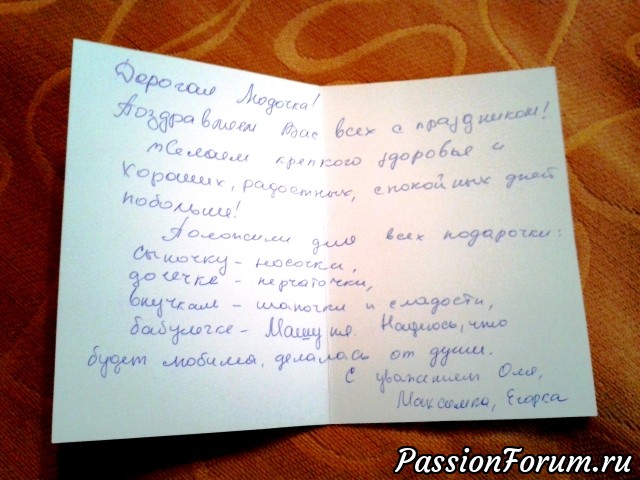 Дорогая Людочка!
Поздравляем Вас всех с праздником!
Желаем крепкого здоровья и
хороших, радостных, спокойных дней
побольше!
Положили для всех подарочки:
сыночку - носочки,
дочечке - перчаточки,
внучкам - шапочки и сладости,
бабулечке - Машуня. Надеюсь, что
будет любима, делалась от души.
С уважением Оля,
Максимка, Егорка
PassionForum.ru